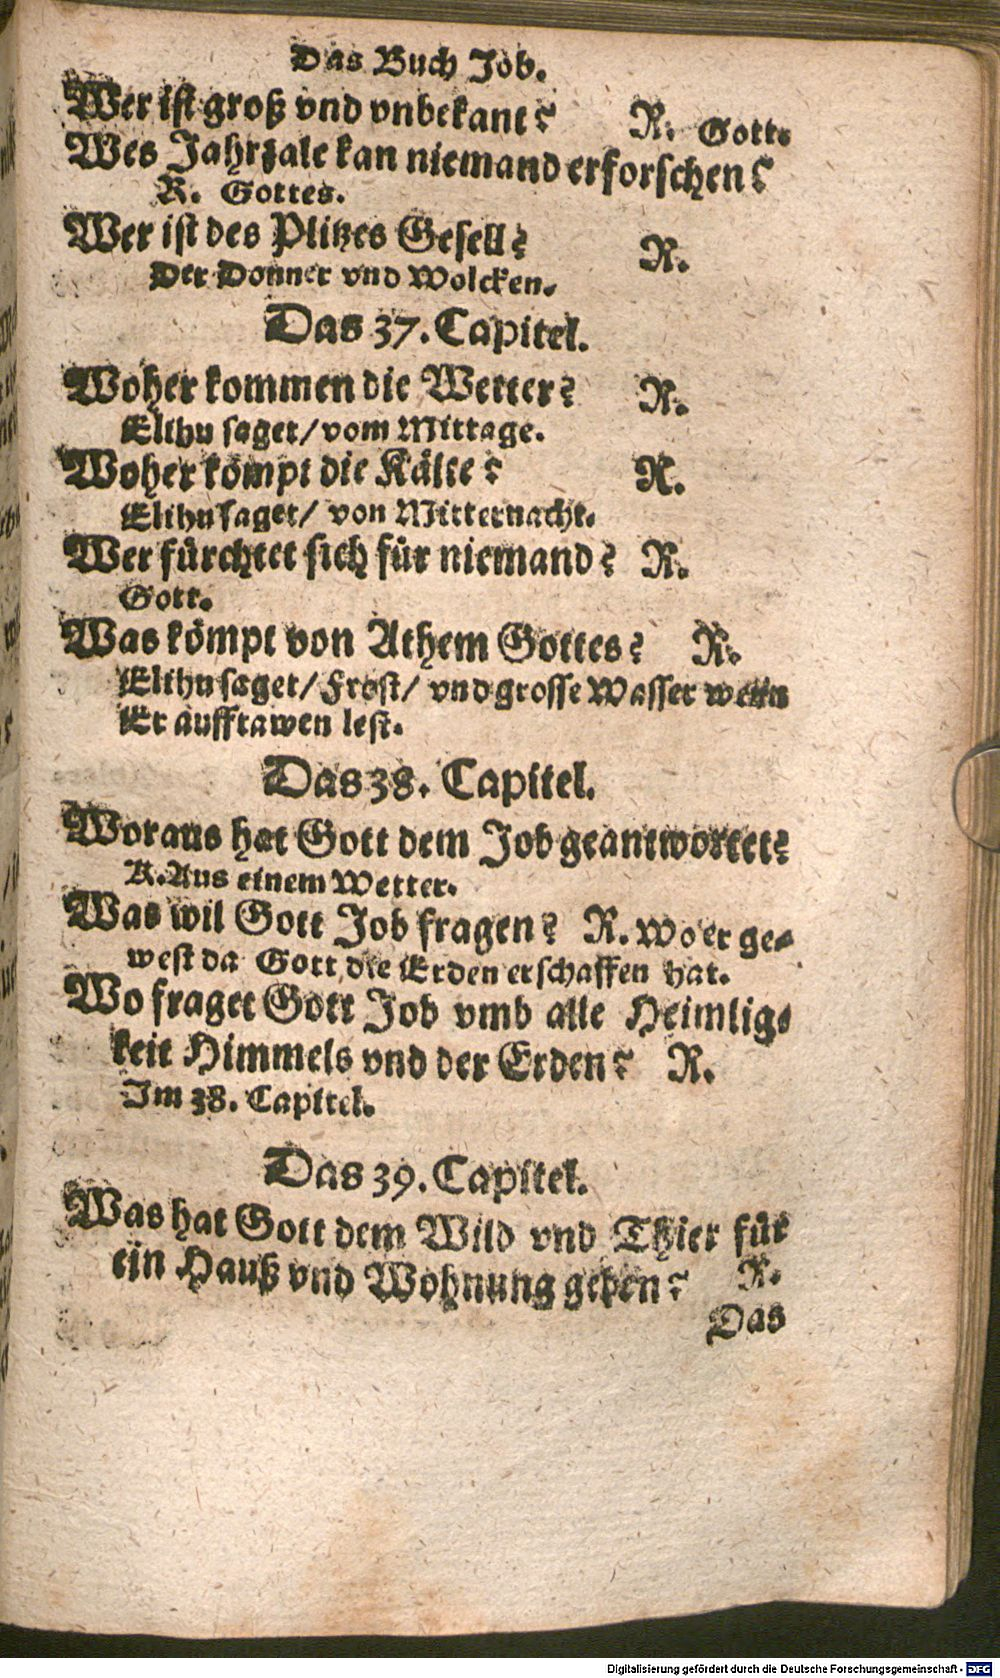 Das Buch Job.
Wer ist groß vnd vnbekant? R. Gott.
Wes Jahrzale kan niemand erforschen?
R. Gottes.
Wer ist des Plitzes Gesell? R.
Der Donner vnd Wolcken.
Das 37. Capitel.
Woher kommen die Wetter? R.
Elihu saget/ vom Mittage.
Woher kömpt die Kälte? R.
Elihu saget/ von Mitternacht.
Wer fürchtet sich für niemand? R.
Gott.
Was kömpt von Athem Gottes? R.
Elihu saget/ Frost/ vnd grosse Wasser wenn
Er aufftawen lest.
Das 38. Capitel.
Woraus hat Gott dem Job geantwortet?
R. Aus einem Wetter.
Was wil Gott Job fragen? R. Wo er ge-
west da Gott die Erden erschaffen hat.
Wo fraget Gott Job vmb alle Heimlig-
keit Himmels vnd der Erden? R.
Im 38. Capitel.
Das 39. Capitel.
Was hat Gott dem Wild vnd Thier für
ein Hauß vnd Wohnung geben? R.
Das
Digitalisierung gefördert durch die Deutsche Forschungsgemeinschaft - DFG